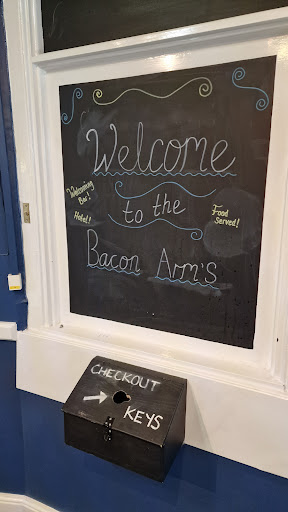 Welcome
Welcoming
Bar!
Hotel!
to the
Food
Served!
Bacon Arm's
CHECKOUT
KEYS